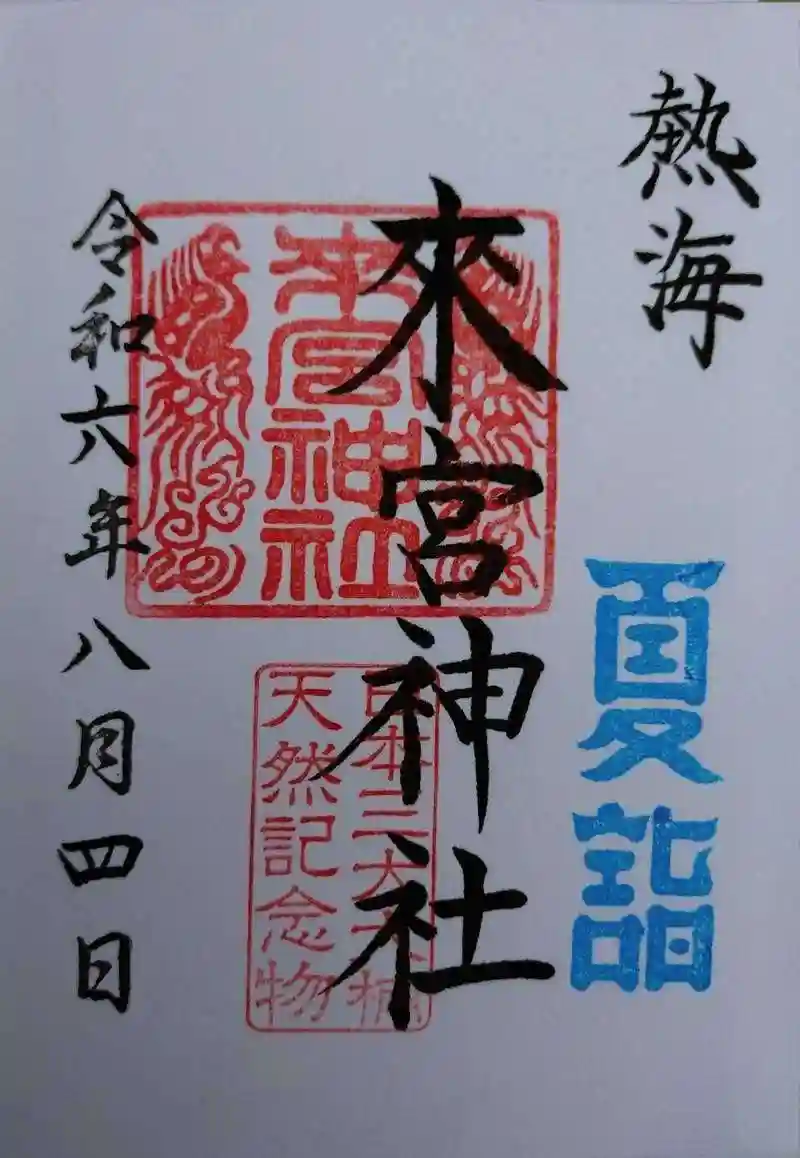 熱海
夏詣
來宮神社
来宮
神社
日本三大大楠
天然記念物
令和六年八月四日